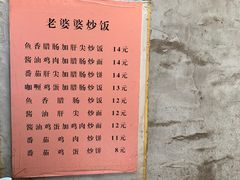 老婆婆炒饭
鱼香腊肠加肝尖炒饭 14元
酱油鸡肉加腊肠炒面 14元
番茄肝尖加鸡蛋炒饼 14元
咖喱鸡蛋加腊肠炒饭 13元
鱼香腊肠炒饭 12元
酱油肝尖炒面 12元
酱油鸡蛋加鸡肉炒面 12元
番茄鸡肉炒饼 11元
番茄鸡蛋炒饼 8元